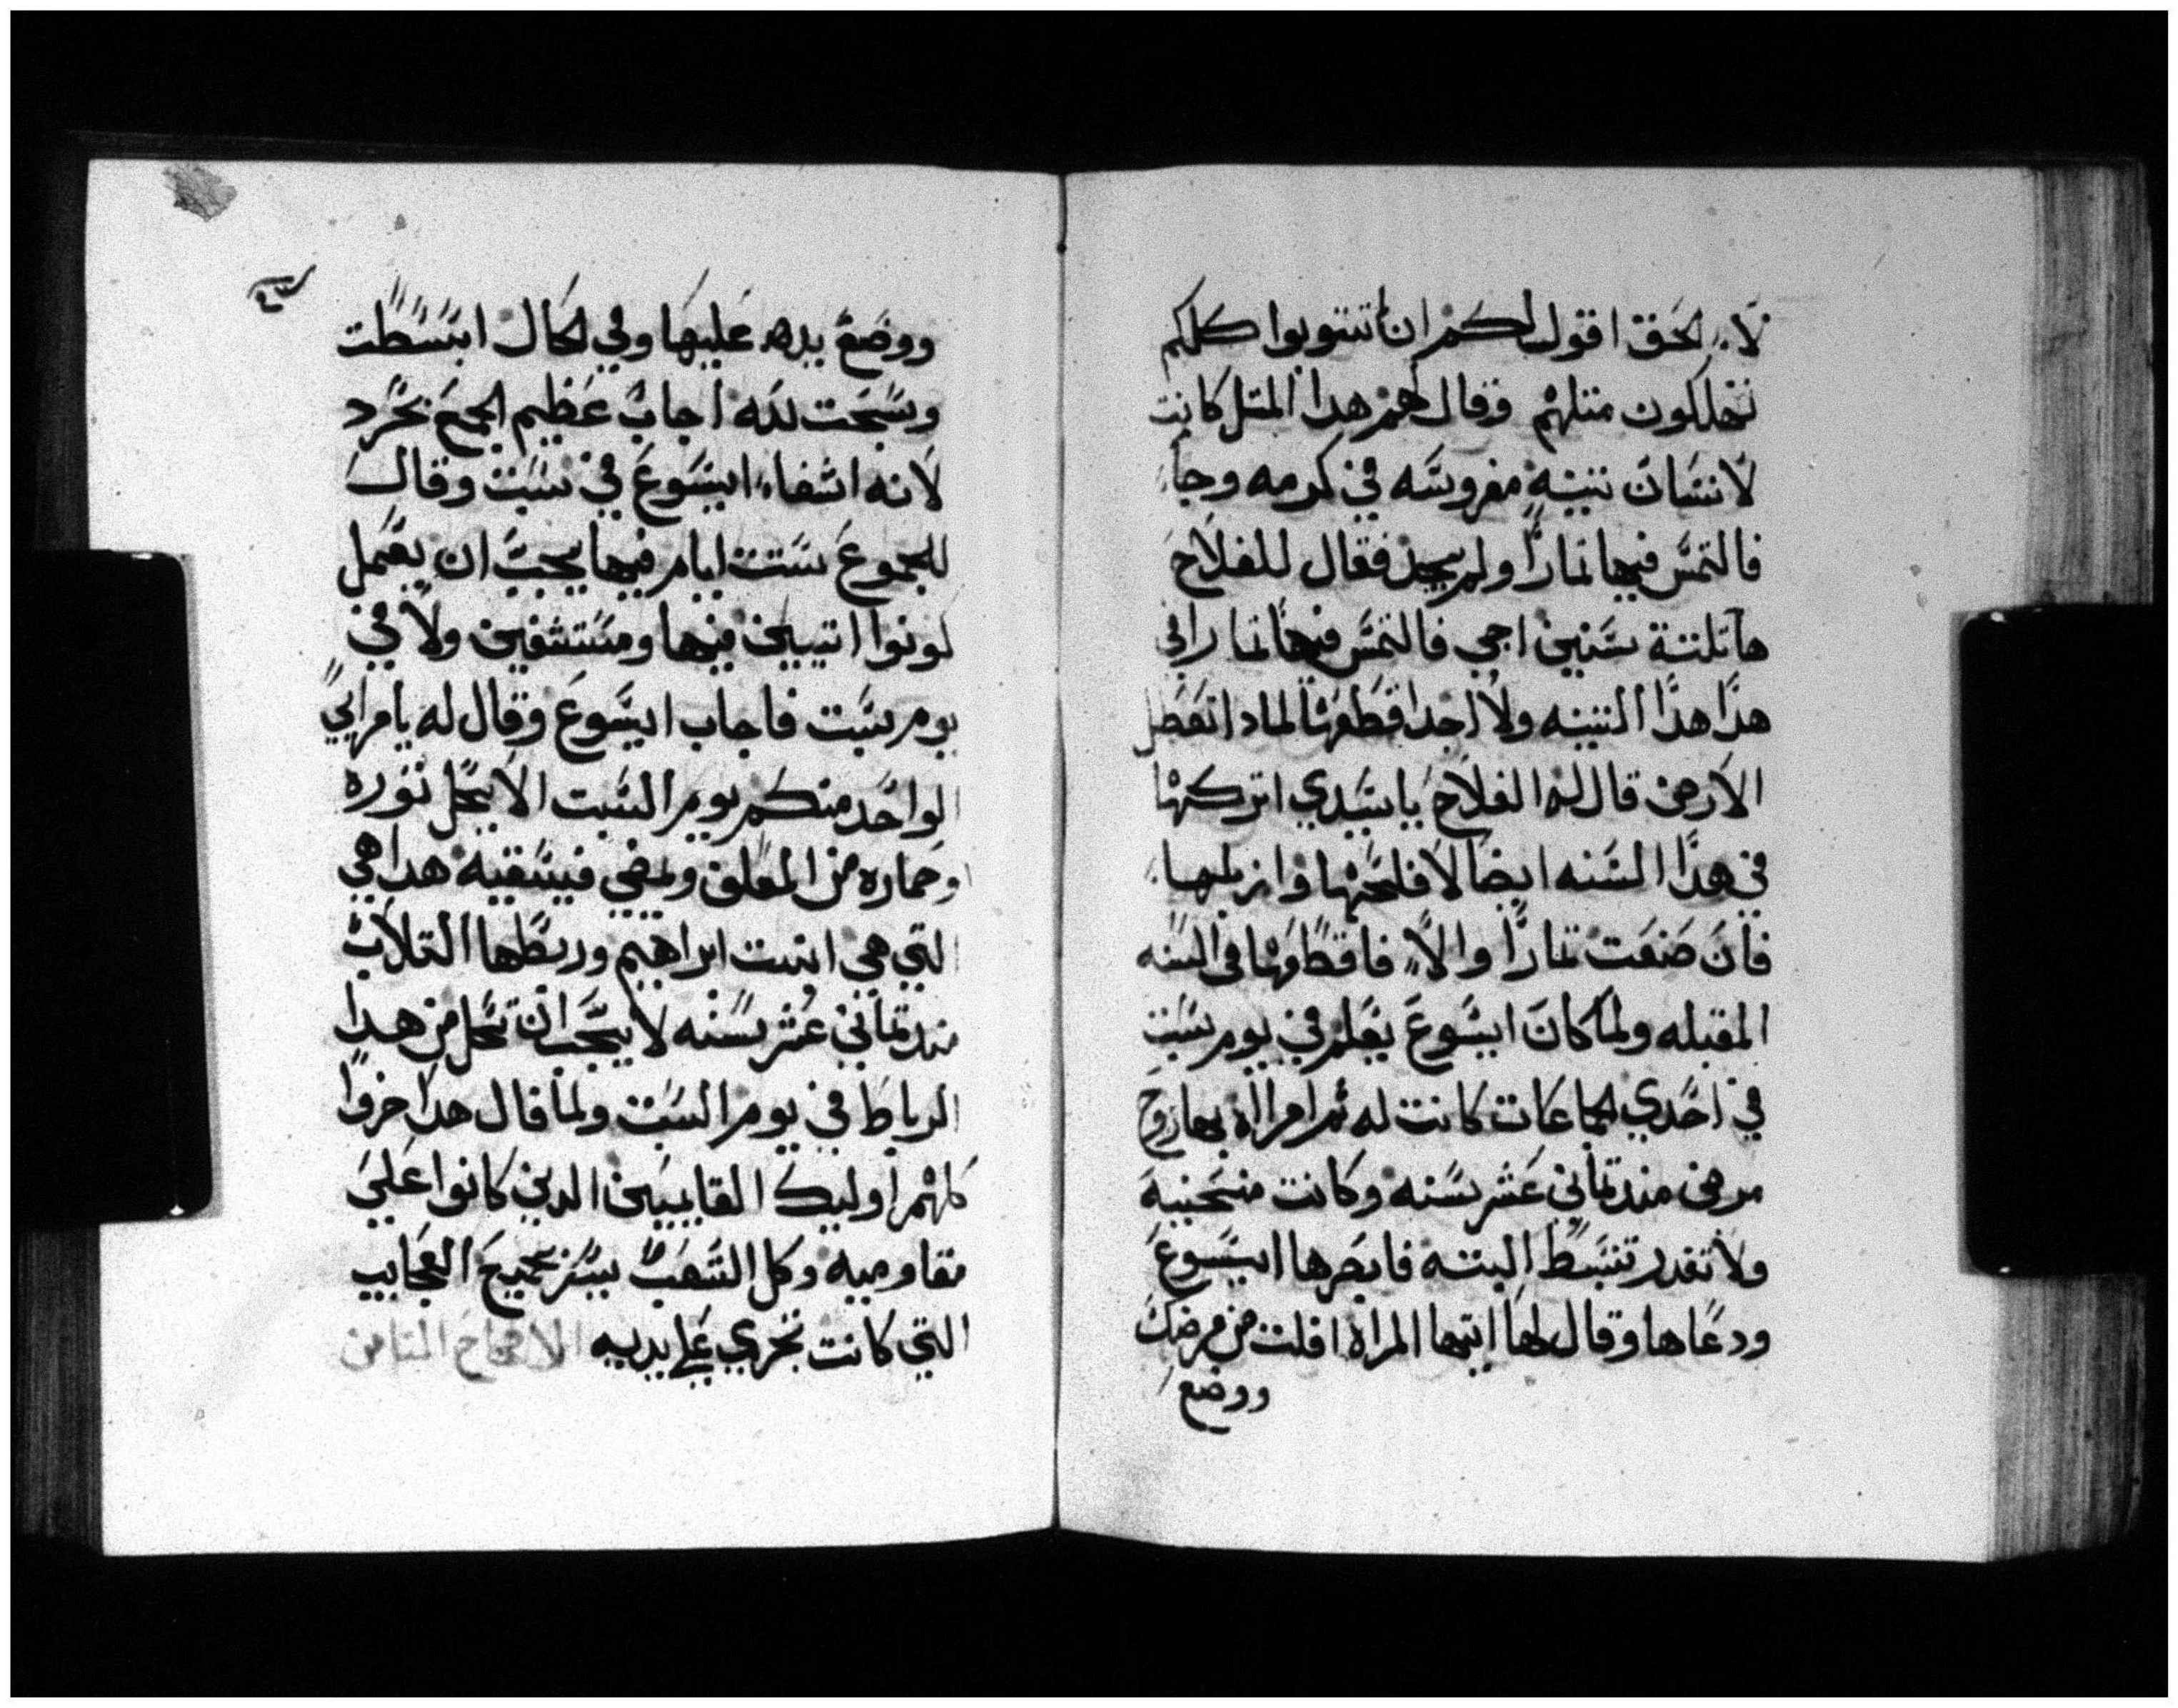 لا. الحق اقول لكم ان تتوبوا كلكم
تهلكون متلهم وقال لهم هدا المتل كانت
لانسان تينه مغروسه في كرمه وجاء
فالتمس فيها تمارًا ولم يجد فقال للفلاح
ها تلتة سنين اجي فالتمس فيها تمارا في
هدا هدا التينه ولا اجد اقطعها لمادا تعطل
الارض قال له الفلاح يا سيدي اتركها
في هدا السنه ايضا لافلحها وازبلها
فان صنعت تمارًا والا فاقطعها في السنه
المقبله ولما كان ايسوع يعلم في يوم سبت
في احدي الجماعات كانت له تم امراه بها روح
مرض مند تماني عشر سنه وكانت منحنيه
ولا تقدر تنبسط البته فابصرها ايسوع
ودعاها وقال لها ايتها المراه افلت من مرضك
ووضع
ووضع يده عليها وفي الحال ابتسطت
وسبحت لله اجاب عظيم الجمع بحرد
لانه اشفاء ايسوع في سبت وقال
للجموع ستت ايام فيها يجب ان يعمل
كونوا اتيين فيها ومستشفين ولا في
يوم سبت فاجاب ايسوع وقال له يا مرايي
الواحد منكم يوم السبت الا يحل توره
او حماره من المعلق ويمضي فيسقيه هدا هي
التي هي ابنت ابراهيم وربطها التلاب
مند تماني عشر سنه لا يجب ان تحل من هدا
الرباط في يوم السبت ولما قال هدا خزوا
كلهم اوليك القاييين الدين كانوا علي
مقاوميه وكل الشعب يسر بجميع العجايب
التي كانت تجري علي يديه الاصحاح التامن